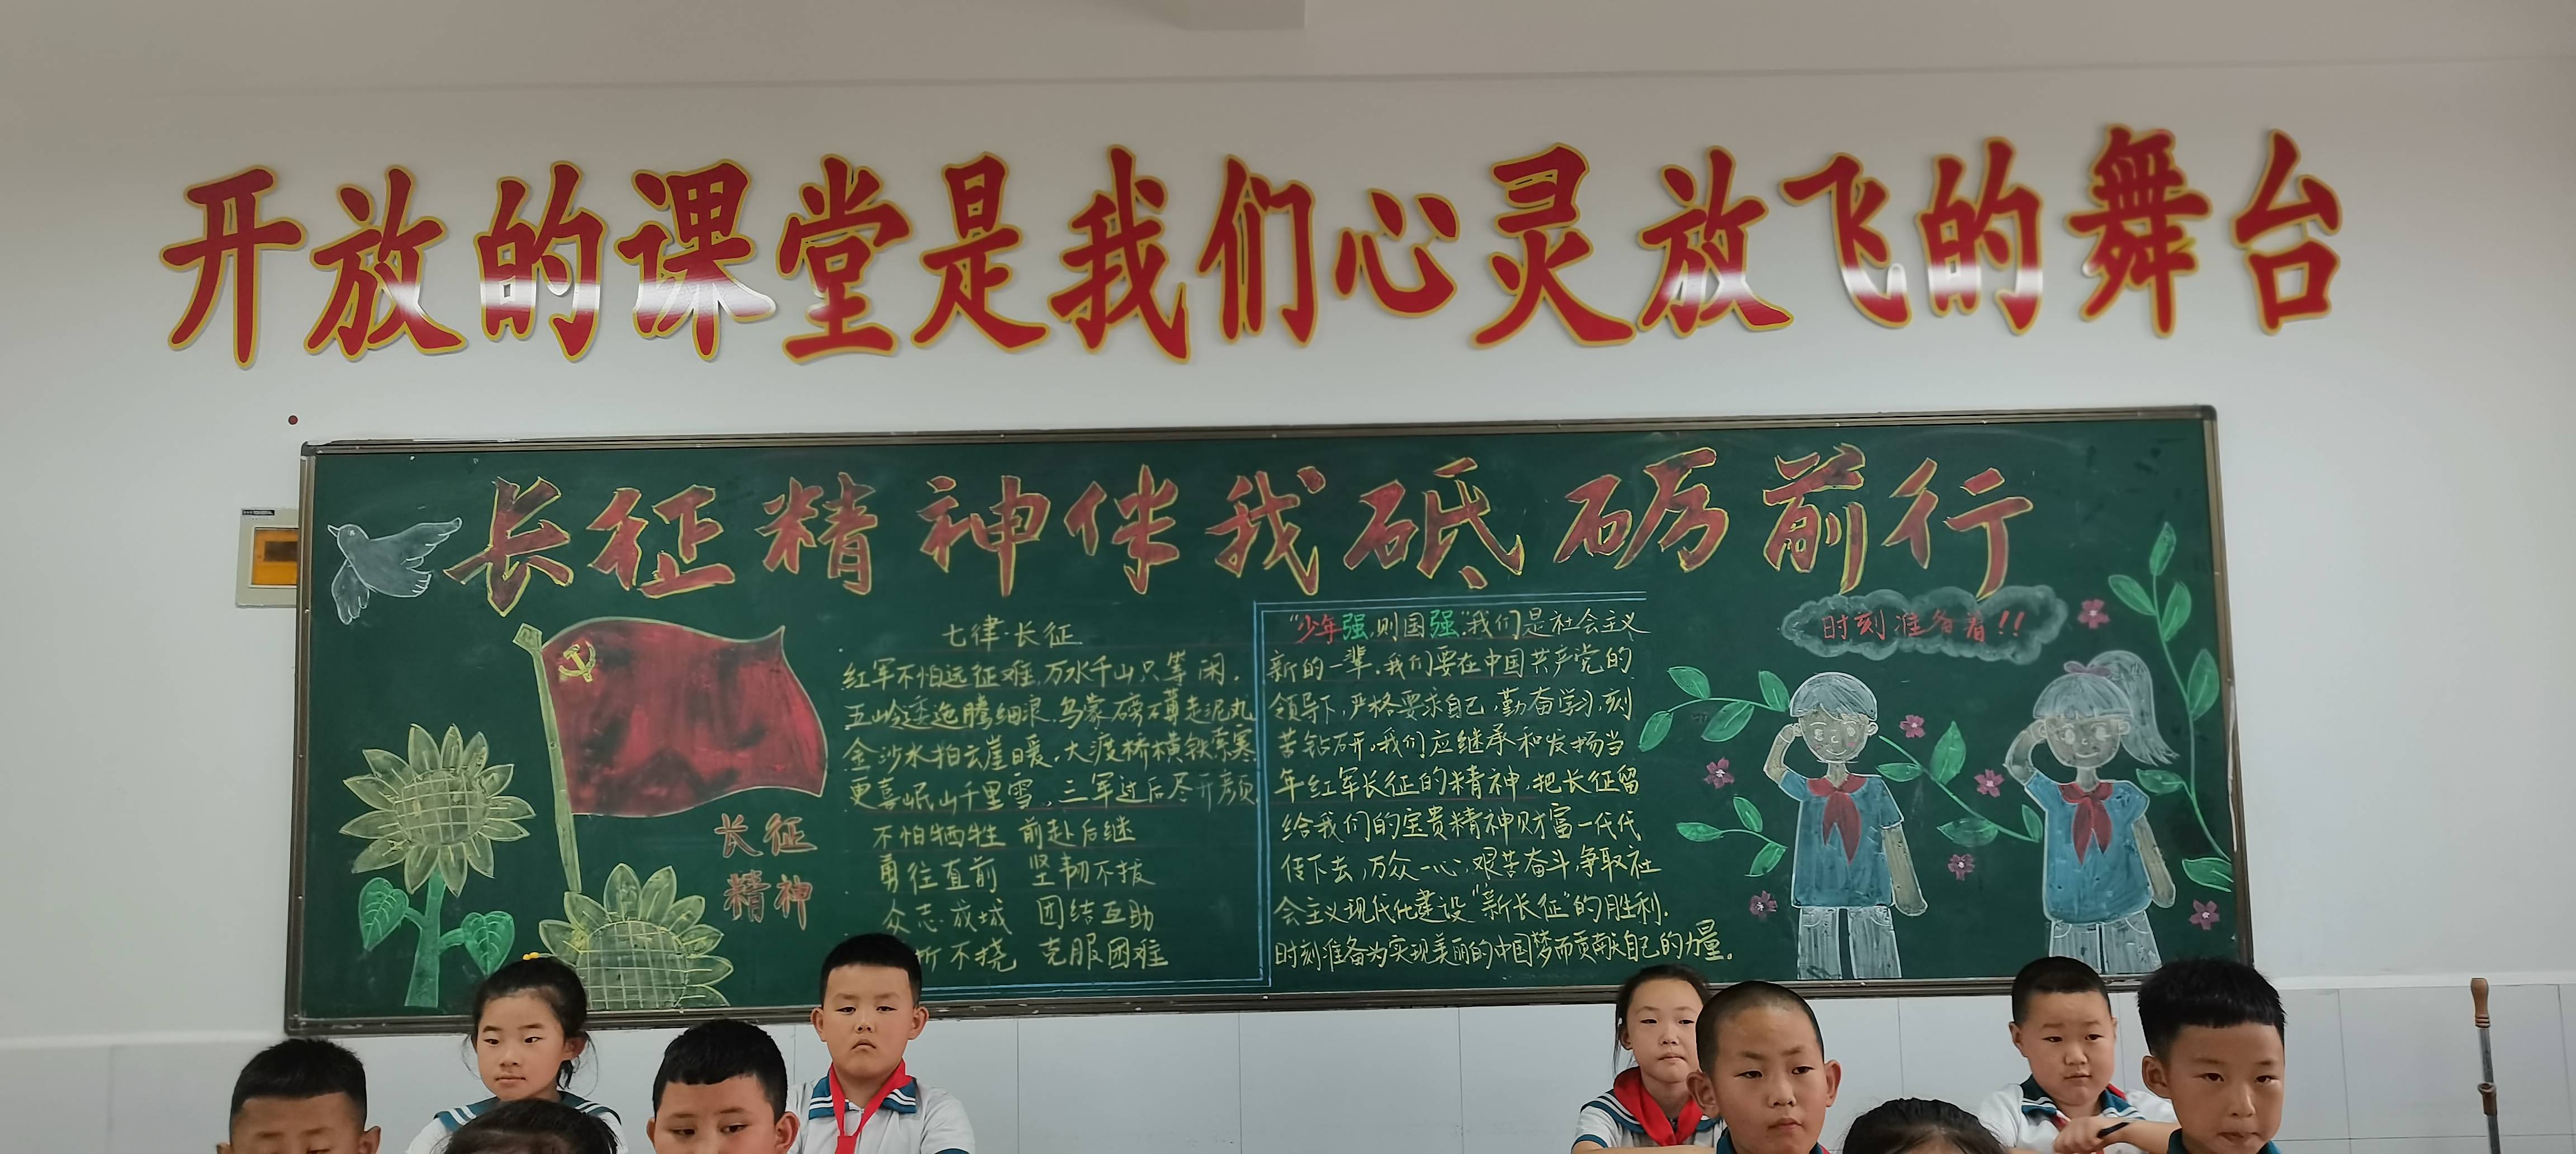 开放的课堂是我们心灵放飞的舞台
长征精神伴我砥砺前行
七律·长征
红军不怕远征难,万水千山只等闲.
五岭逶迤腾细浪,乌蒙磅礴走泥丸
金沙水拍云崖暖,大渡桥横铁索寒
更喜岷山千里雪,三军过后尽开颜
不怕牺牲 前赴后继
勇往直前 坚韧不拔
众志成城 团结互助
折不挠 克服困难
长征
精神
“少年强,则国强”我们是社会主义
新的一辈,我们要在中国共产党的
领导下,严格要求自己,勤奋学习,刻
苦钻研,我们应继承和发扬当
年红军长征的精神,把长征留
给我们的宝贵精神财富一代代
传下去,万众一心,艰苦奋斗,争取社
会主义现代化建设“新长征”的胜利.
时刻准备为实现美丽的中国梦而贡献自己的力量。
时刻准备着!!